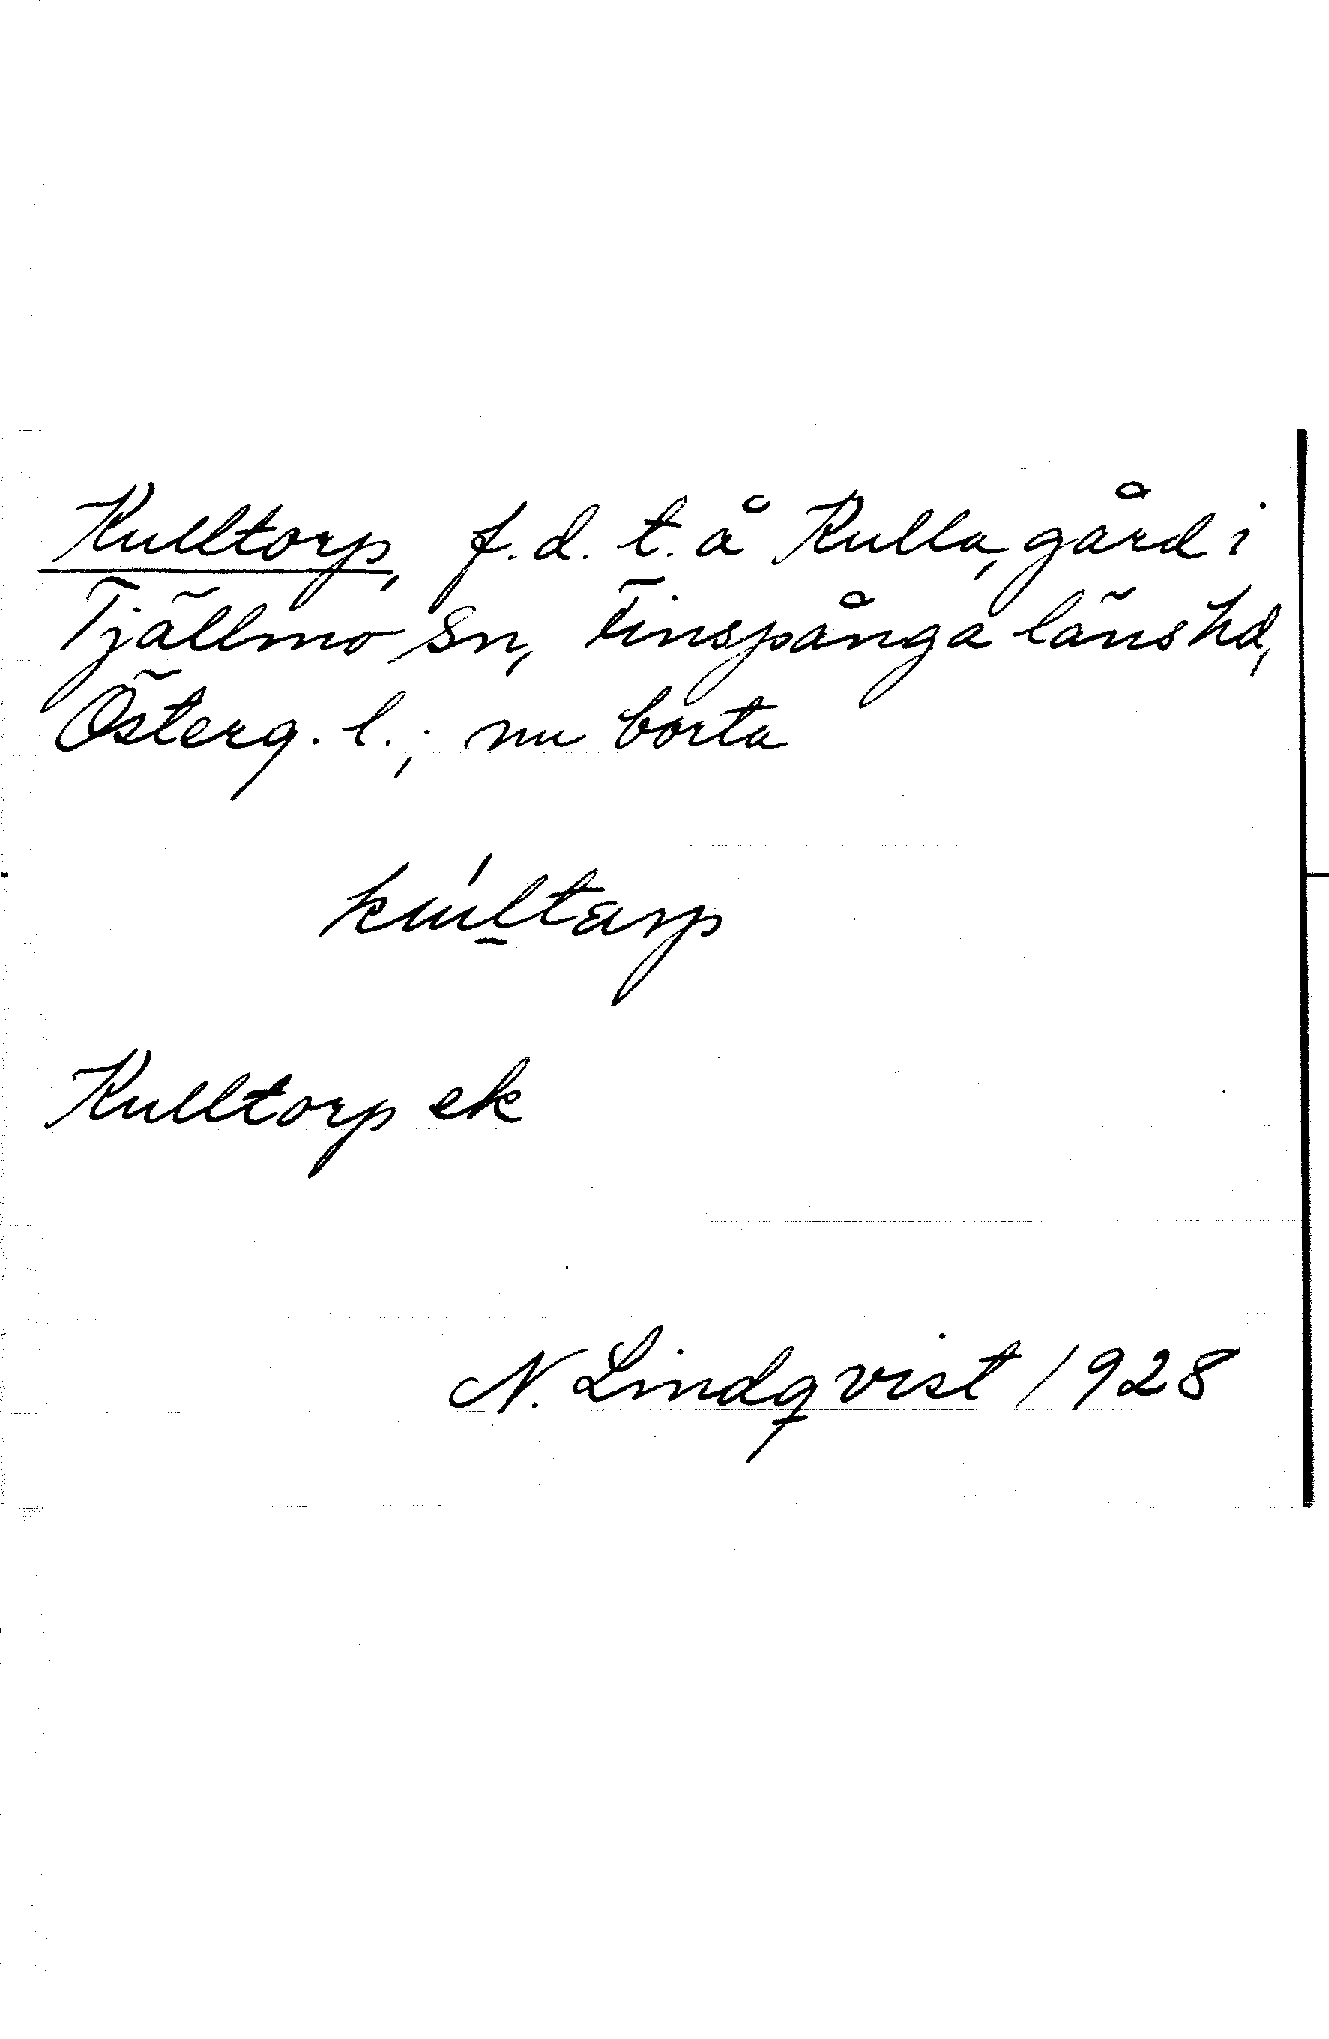 Kulltorp, f.d. t. å Rulla, gård i
Tjällmo sn, Finspånga läns hd,
Österg. l.; nu borta
ku̍ltarp
Kulltorp ek
N. Lindqvist 1928